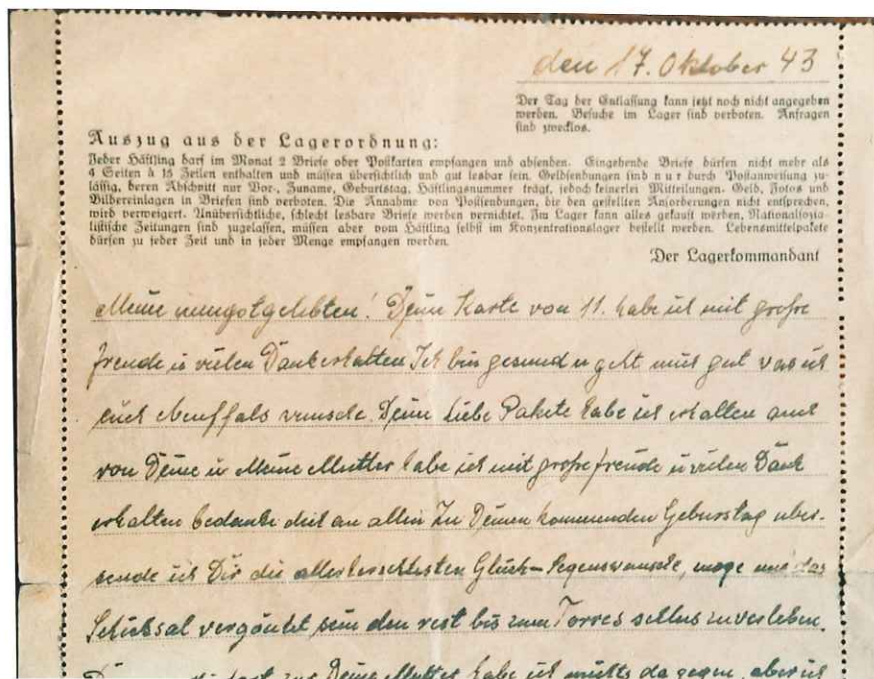 den 17. Oktober 43
Der Tag der Entlassung kann jetzt noch nicht angegeben
werden. Besuche im Lager sind verboten. Anfragen
sind zwecklos.
Auszug aus der Lagerordnung:
Jeder Häftling darf im Monat 2 Briefe oder Postkarten empfangen und absenden. Eingehende Briefe dürfen nicht mehr als
4 Seiten à 15 Zeilen enthalten und müssen übersichtlich und gut lesbar sein. Geldsendungen sind nur durch Postanweisung zu-
lässig, deren Abschnitt nur Vor-, Zuname, Geburtstag, Häftlingsnummer trägt, jedoch keinerlei Mitteilungen. Geld, Fotos und
Bildereinlagen in Briefen sind verboten. Die Annahme von Postsendungen, die den gestellten Anforderungen nicht entsprechen,
wird verweigert. Unübersichtliche, schlecht lesbare Briefe werden vernichtet. Im Lager kann alles gekauft werden. Nationalsozia-
listische Zeitungen sind zugelassen, müssen aber vom Häftling selbst im Konzentrationslager bestellt werden. Lebensmittelpakete
dürfen zu jeder Zeit und in jeder Menge empfangen werden.
Der Lagerkommandant
Meine! Deine Karte von 11. habe ich mit große
freude u vielen Dank erhalten Ich bin gesund u geht mir gut was ich
euch Deine liebe Pakete habe ich erhalten auch
von Deine u Meine Mutter habe ich mit große freude u vielen Dank
erhalten bedanke dich an allen Zu Deinen kommenden Geburstag uber-
sende ich Dir die Glück-, moge uns das
Schicksal sein den rest bis zum
Deine Mutter habe ich da gegen, aber ich